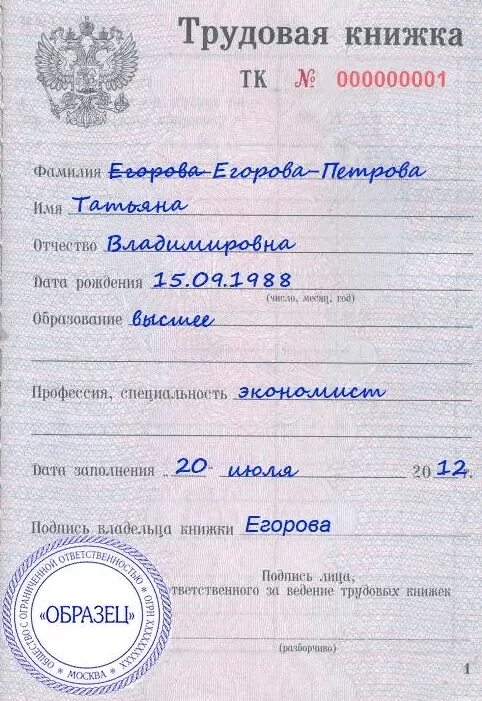 Трудовая книжка
ТК № 000000001
Фамилия Егорова Егорова-Петрова
Имя Татьяна
Отчество Владимировна
Дата рождения 15.09.1988
(число, месяц, год)
Образование высшее
Профессия, специальность экономист
Дата заполнения 20 июля 2012 г.
Подпись владельца книжки Егорова
Подпись лица,
тветственного за ведение трудовых книжек
(разборчиво)
ОБЩЕСТВО С ОГРАНИЧЕННОЙ ОТВЕТСТВЕННОСТЬЮ * ОГРН XXXXXXXXX * МОСКВА *
«ОБРАЗЕЦ»
1